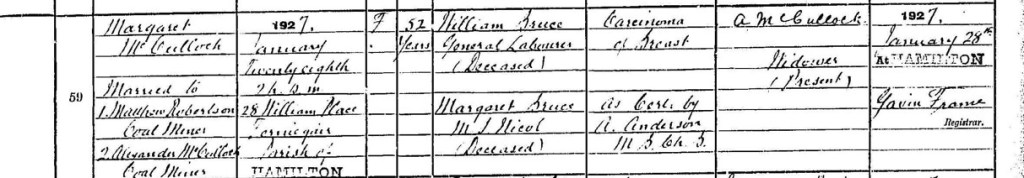 59
Margaret
McCulloch
Married to
1. Matthew Robertson
Coal Miner
2. Alexander McCulloch
Coal Miner
1927.
January
Twenty eighth
2h. P.M
28 William Place
Ferniegair
Parish of
HAMILTON
F
52
Years
William Bruce
General Labourer
(Deceased)
Margaret Bruce
M.S. Nicol
(Deceased)
Carcinoma
of Breast
As Cert. by
A. Anderson
M.B. Ch.B.
A McCullock
Widower
(Present)
1927.
January 28th
At HAMILTON
Gavin Frame
Registrar.